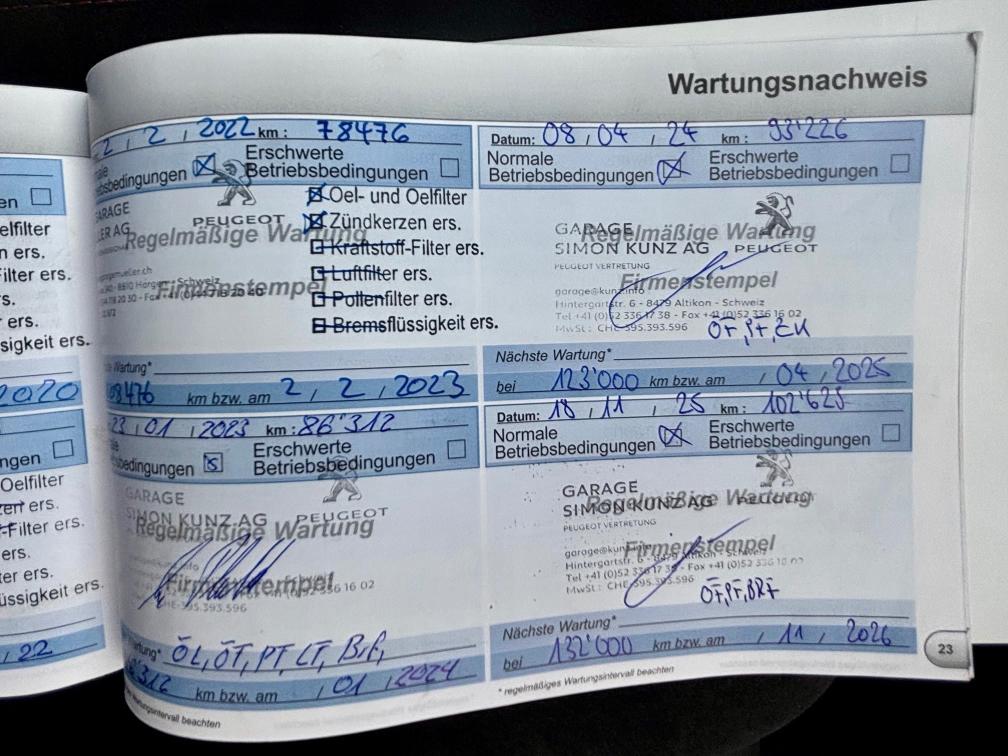 Wartungsnachweis
en
elfilter
n ers.
ilter ers.
rs.
ers.
sigkeit ers.
2020
ngen
Oelfilter
zen ers.
-Filter ers.
ers.
er ers.
üssigkeit ers.
/ 22
2 / 2 / 2022 km : 78476
ale
ebsbedingungen
Erschwerte
Betriebsbedingungen
Oel- und Oelfilter
Zündkerzen ers.
Kraftstoff-Filter ers.
Luftfilter ers.
Pollenfilter ers.
Bremsflüssigkeit ers.
GARAGE
ER AG
PEUGEOT
Regelmäßige Wartung
Firmenstempel
Schweiz
te Wartung*
km bzw. am 2 / 2 / 2023
23 / 01 / 2023 km : 86'312
ebsbedingungen
Erschwerte
Betriebsbedingungen
GARAGE
SIMON KUNZ AG PEUGEOT
Regelmäßige Wartung
Firmenstempel
336 16 02
CHE-395.393.596
Wartung* ÖL, ÖF, PF, LF, Brf,
km bzw. am / 01 / 2024
Wartungsintervall beachten
Datum: 08 / 04 / 24 km : 93'226
Normale
Betriebsbedingungen
Erschwerte
Betriebsbedingungen
GARAGE
SIMON KUNZ AG PEUGEOT
Regelmäßige Wartung
PEUGEOT VERTRETUNG
Firmenstempel
garage@kunz.info
Hintergartstr. 6 - 8479 Altikon - Schweiz
Tel +41 (0)52 336 17 38 - Fax +41 (0)52 336 16 02
MwSt : CHE-395.393.596
ÖF, PF, ZK
Nächste Wartung*
bei 123'000 km bzw. am / 04 / 2025
Datum: 18 / 11 / 25 km : 102'625
Normale
Betriebsbedingungen
Erschwerte
Betriebsbedingungen
GARAGE
SIMON KUNZ AG PEUGEOT
Regelmäßige Wartung
PEUGEOT VERTRETUNG
Firmenstempel
garage@kunz.info
Hintergartstr. 6 - 8479 Altikon - Schweiz
Tel +41 (0)52 336 17 38 - Fax +41 (0)52 336 16 02
MwSt : CHE-395.393.596
ÖF, PF, BRF
Nächste Wartung*
bei 132'000 km bzw. am / 11 / 2026
* regelmäßiges Wartungsintervall beachten
23